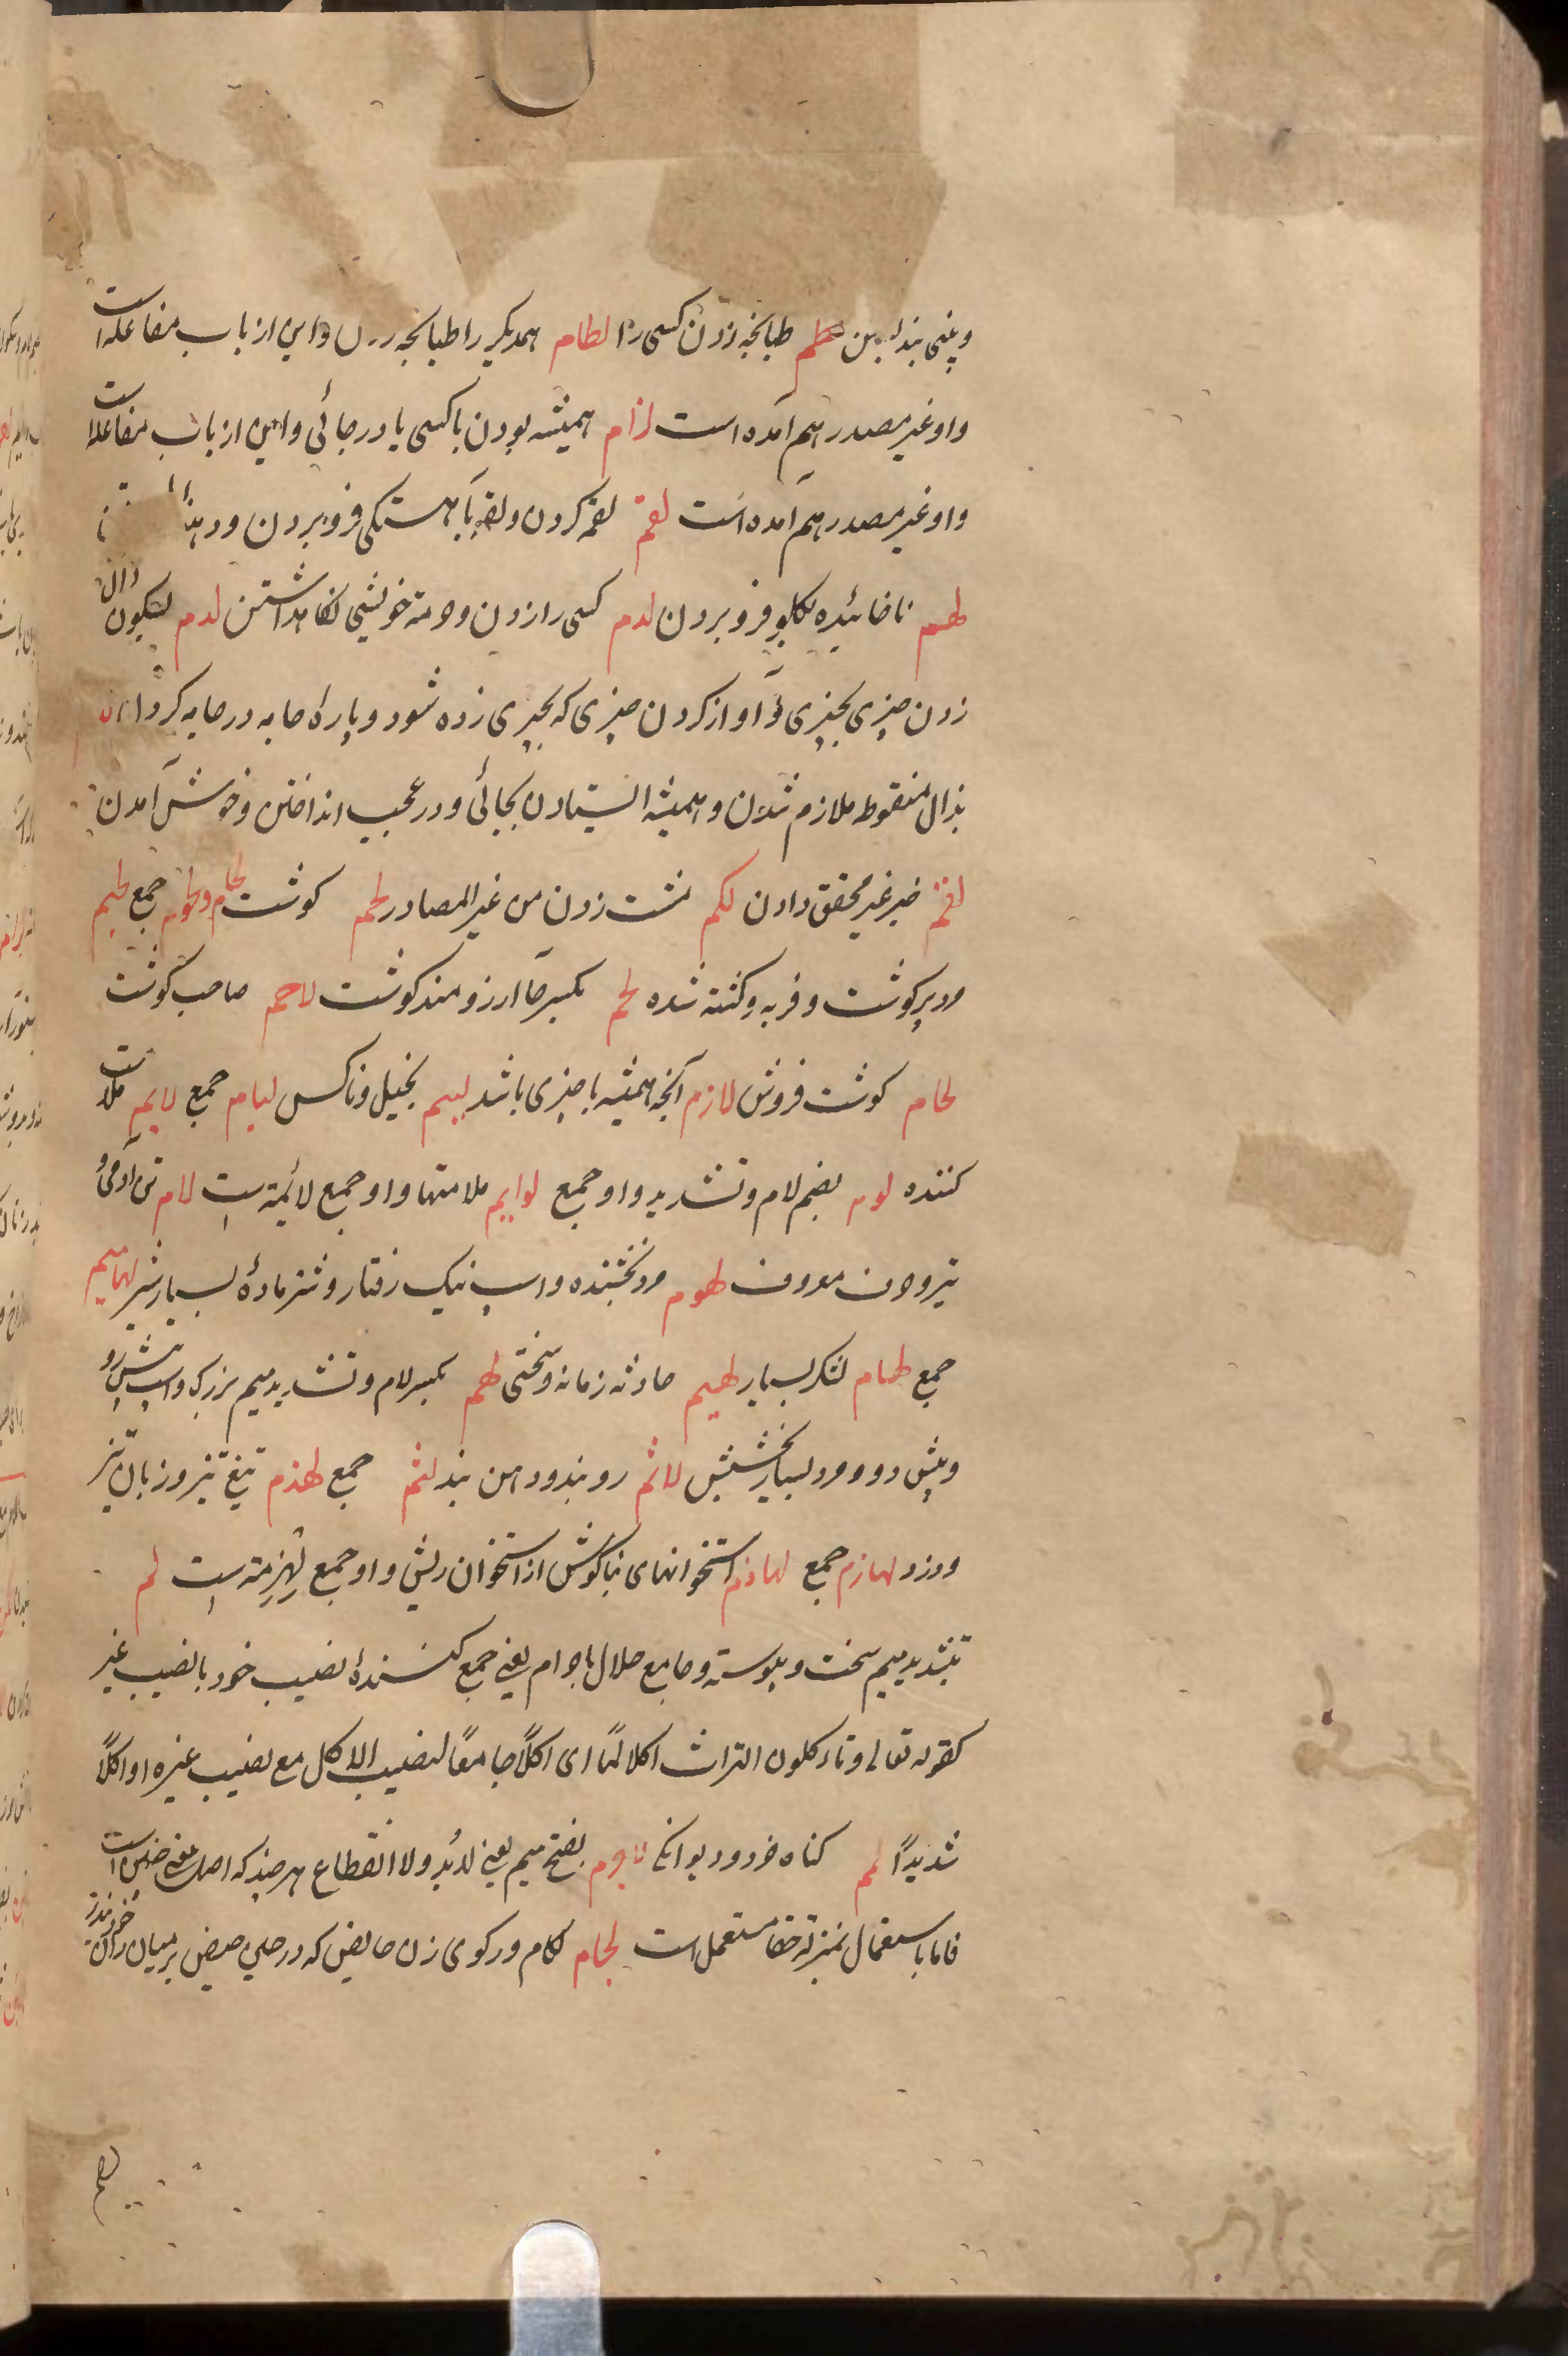 و بینی بند لطم طبانچه زدن کسی را لطام همدیکر را طبانچه زدن و این از باب مفاعله است
و او غیر مصدر هم آمده است لزام همیشه بودن با کسی یا در جائی و این از باب مفاعله است
و او غیر مصدر هم آمده است لقم لقمه کردن و لقمه بآهستکی فرو بردن و
لهم ناخائیده بکلو فرو بردن لدم کسی را زدن و حرمة خویشی نکاهداشتن لدم بسکون دال
زدن چیزی بچیزی و آواز کردن چیزی که بچیزی زده شود و پاره جامه در جامه کردن
بذال منقوط ملازم شدن و همیشه ایستادن بجائی و در عجب انداختن و خوش آمدن
لغم خبر غیر محقق دادن لکم مشت زدن من غیر المصادر لحم کوشت لحام و لحوم جمع لحیم
مرد پرکوشت و فربه و کشته شده لحم بکسر حا آرزومند کوشت لاحم صاحب کوشت
لحام کوشت فروش لازم آنچه همیشه با چیزی باشد لییم بخیل و ناکس لیام جمع لایم ملامت
کننده لوم بضم لام و تشدید واو جمع لوایم ملامتها و او جمع لائمة است لام تن آدمی و
تیر و حرف معروف لهوم مرد بخشنده و اسپ نیک رفتار و شتر ماده بسیار شیر لهامیم
جمع لهام لشکر بسیار لهیم حادثه زمانه و سختی لهم بکسر لام و تشدید میم بزرک و اسپ پیش رو
و پیش دو و مرد بسیار بخشش لاثم روبند و دهن بند لثم جمع لهذم تیغ تیز و زبان تیز
و دزد لهازم جمع لهاذم استخوانهای بناکوش از استخوان ریش و او جمع لهزمة است لم
بتشدید میم سخت و پیوسته و جامع حلال با حرام یعنی جمع کننده نصیب خود با نصیب غیر
کقوله تعالی و تاءکلون التراث اکلا لمّا ای اکلًا جامعًا لنصیب الاکل مع نصیب غیره او اکلًا
شدیدًا لم کناه خرد و دیوانکی لاجرم بفتح میم یعنی لابُد و لا انقطاع هر چند که اصل معنی چنین است
فاما باستعمال بمنزلة حقا مستعمل است لجام لکام و رکوی زن حایض که در حین حیض بر میان ران خود بندد
لهم